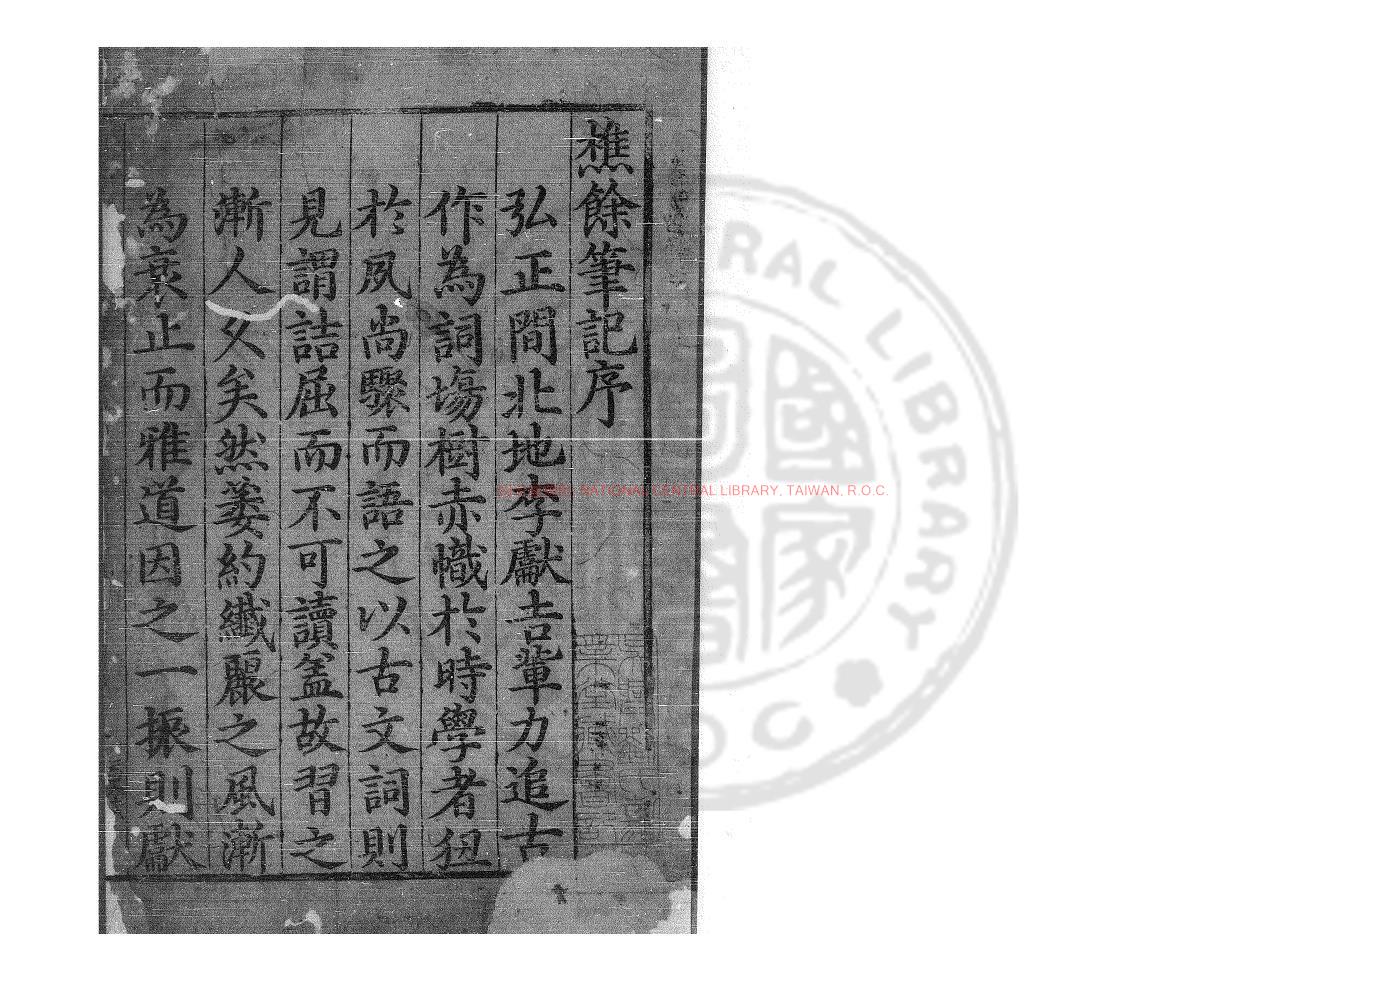 樵餘筆記序
弘正間北地李獻吉輩力追古
作為詞塲樹赤幟於時學者狃
於夙尚驟而語之以古文詞則
見謂詰屈而不可讀盖故習之
漸人久矣然萎約纖麗之風漸
為衰止而雅道因之一振則獻
NATIONAL CENTRAL LIBRARY, TAIWAN, R.O.C.
RAL LIBRARY